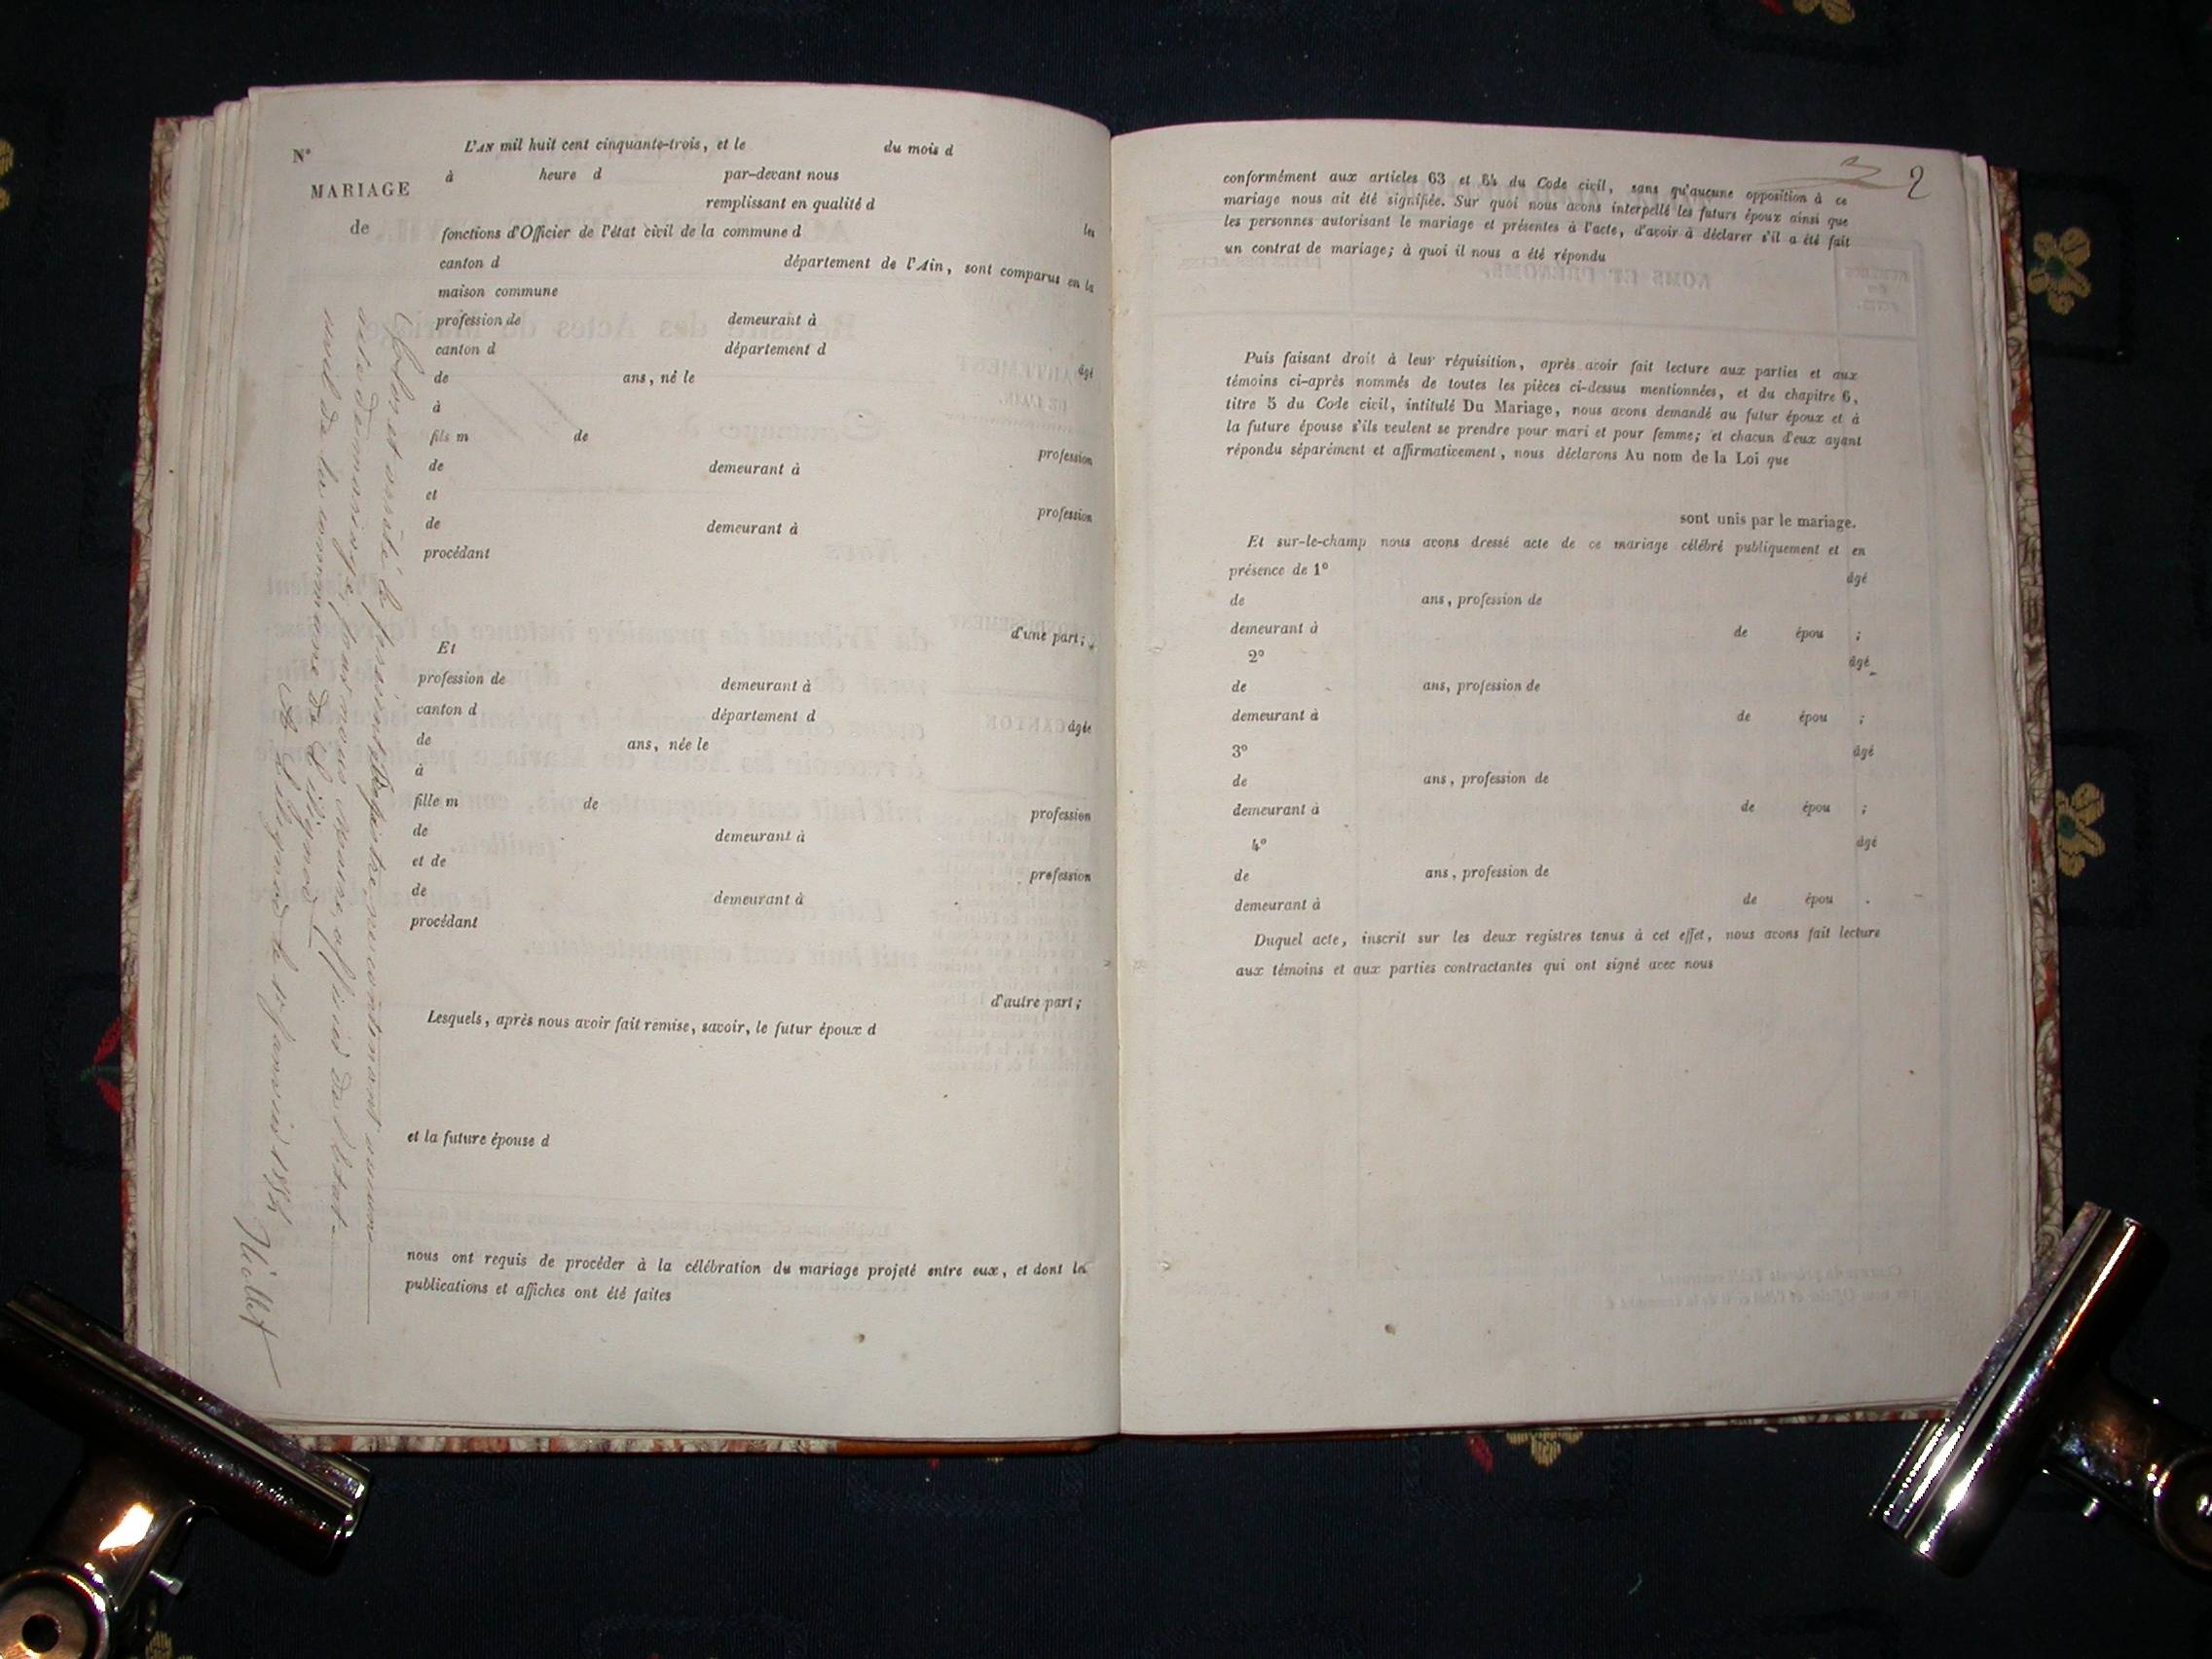 N°
MARIAGE
de
L'AN mil huit cent cinquante-trois, et le du mois d
à heure d par-devant nous
remplissant en qualité d
fonctions d'Officier de l'état civil de la commune d les
canton d département de l'Ain, sont comparus en la
maison commune
profession de demeurant à
canton d département d âgé
de ans, né le
à
fils m de profession
de demeurant à
et profession
de demeurant à
procédant
d'une part;
Et
profession de demeurant à
canton d département d âgée
de ans, née le
à
fille m de profession
de demeurant à
et de profession
de demeurant à
procédant
d'autre part;
Lesquels, après nous avoir fait remise, savoir, le futur époux d
et la future épouse d
nous ont requis de procéder à la célébration du mariage projeté entre eux, et dont les
publications et affiches ont été faites
Clos et arrêté le présent Registre, ne contenant aucun
acte de mariage, par nous Maire, officier de l'état-
civil de la commune de
le 1er janvier 1854
2
conformément aux articles 63 et 64 du Code civil, sans qu'aucune opposition à ce
mariage nous ait été signifiée. Sur quoi nous avons interpellé les futurs époux ainsi que
les personnes autorisant le mariage et présentes à l'acte, d'avoir à déclarer s'il a été fait
un contrat de mariage; à quoi il nous a été répondu
Puis faisant droit à leur réquisition, après avoir fait lecture aux parties et aux
témoins ci-après nommés de toutes les pièces ci-dessus mentionnées, et du chapitre 6,
titre 5 du Code civil, intitulé Du Mariage, nous avons demandé au futur époux et à
la future épouse s'ils veulent se prendre pour mari et pour femme; et chacun d'eux ayant
répondu séparément et affirmativement, nous déclarons Au nom de la Loi que
sont unis par le mariage.
Et sur-le-champ nous avons dressé acte de ce mariage célébré publiquement et en
présence de 1° âgé
de ans, profession de
demeurant à de épou ;
2° âgé
de ans, profession de
demeurant à de épou ;
3° âgé
de ans, profession de
demeurant à de épou ;
4° âgé
de ans, profession de
demeurant à de épou .
Duquel acte, inscrit sur les deux registres tenus à cet effet, nous avons fait lecture
aux témoins et aux parties contractantes qui ont signé avec nous